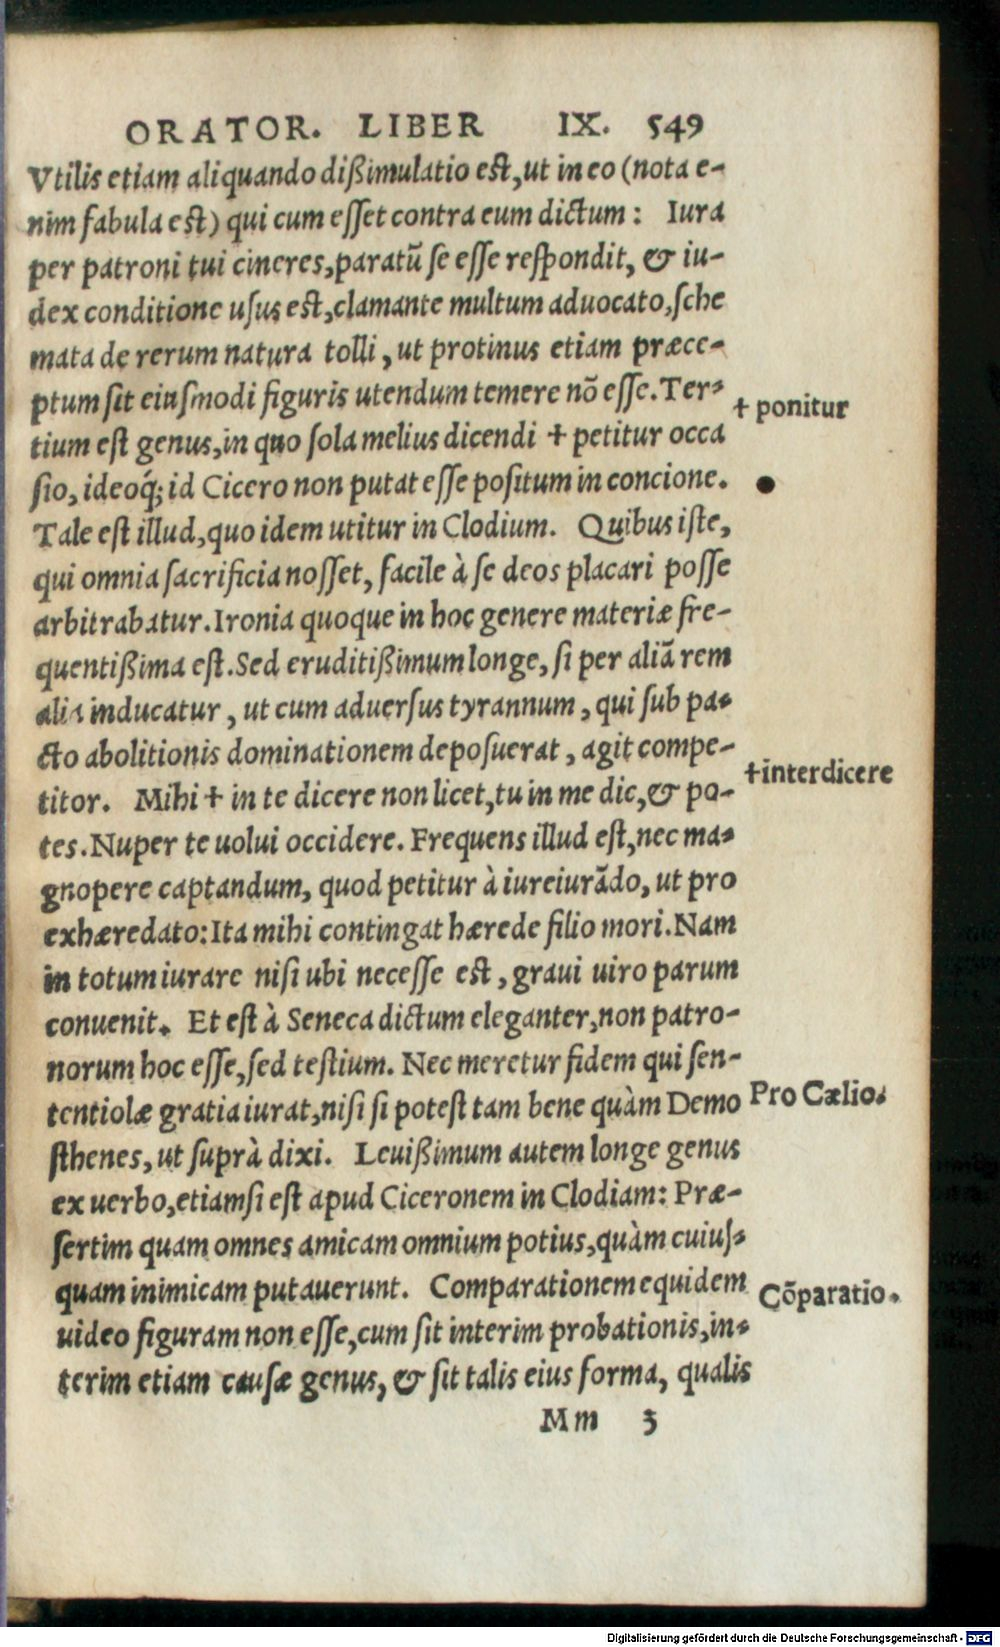 ORATOR. LIBER IX. 549
Vtilis etiam aliquando dißimulatio est, ut in eo (nota e-
nim fabula est) qui cum esset contra eum dictum: Iura
per patroni tui cineres, paratū se esse respondit, & iu-
dex conditione usus est, clamante multum aduocato, sche
mata de rerum natura tolli, ut protinus etiam præce-
ptum sit eiusmodi figuris utendum temere nō esse. Ter-
tium est genus, in quo sola melius dicendi + petitur occa
sio, ideoq́; id Cicero non putat esse positum in concione.
Tale est illud, quo idem utitur in Clodium. Quibus iste,
qui omnia sacrificia nosset, facile à se deos placari posse
arbitrabatur. Ironia quoque in hoc genere materiæ fre-
quentißima est. Sed eruditißimum longe, si per aliā rem
alia inducatur, ut cum aduersus tyrannum, qui sub pa-
cto abolitionis dominationem deposuerat, agit compe-
titor. Mihi + in te dicere non licet, tu in me dic, & po-
tes. Nuper te uolui occidere. Frequens illud est, nec ma-
gnopere captandum, quod petitur à iureiurādo, ut pro
exhæredato: Ita mihi contingat hærede filio mori. Nam
in totum iurare nisi ubi necesse est, graui uiro parum
conuenit. Et est à Seneca dictum eleganter, non patro-
norum hoc esse, sed testium. Nec meretur fidem qui sen-
tentiolæ gratia iurat, nisi si potest tam bene quàm Demo
sthenes, ut suprà dixi. Leuißimum autem longe genus
ex uerbo, etiamsi est apud Ciceronem in Clodiam: Præ-
sertim quam omnes amicam omnium potius, quàm cuius-
quam inimicam putauerunt. Comparationem equidem
uideo figuram non esse, cum sit interim probationis, in-
terim etiam causæ genus, & sit talis eius forma, qualis
Mm 3
+ ponitur
+interdicere
Pro Cælio.
Cōparatio.
Digitalisierung gefördert durch die Deutsche Forschungsgemeinschaft - DFG